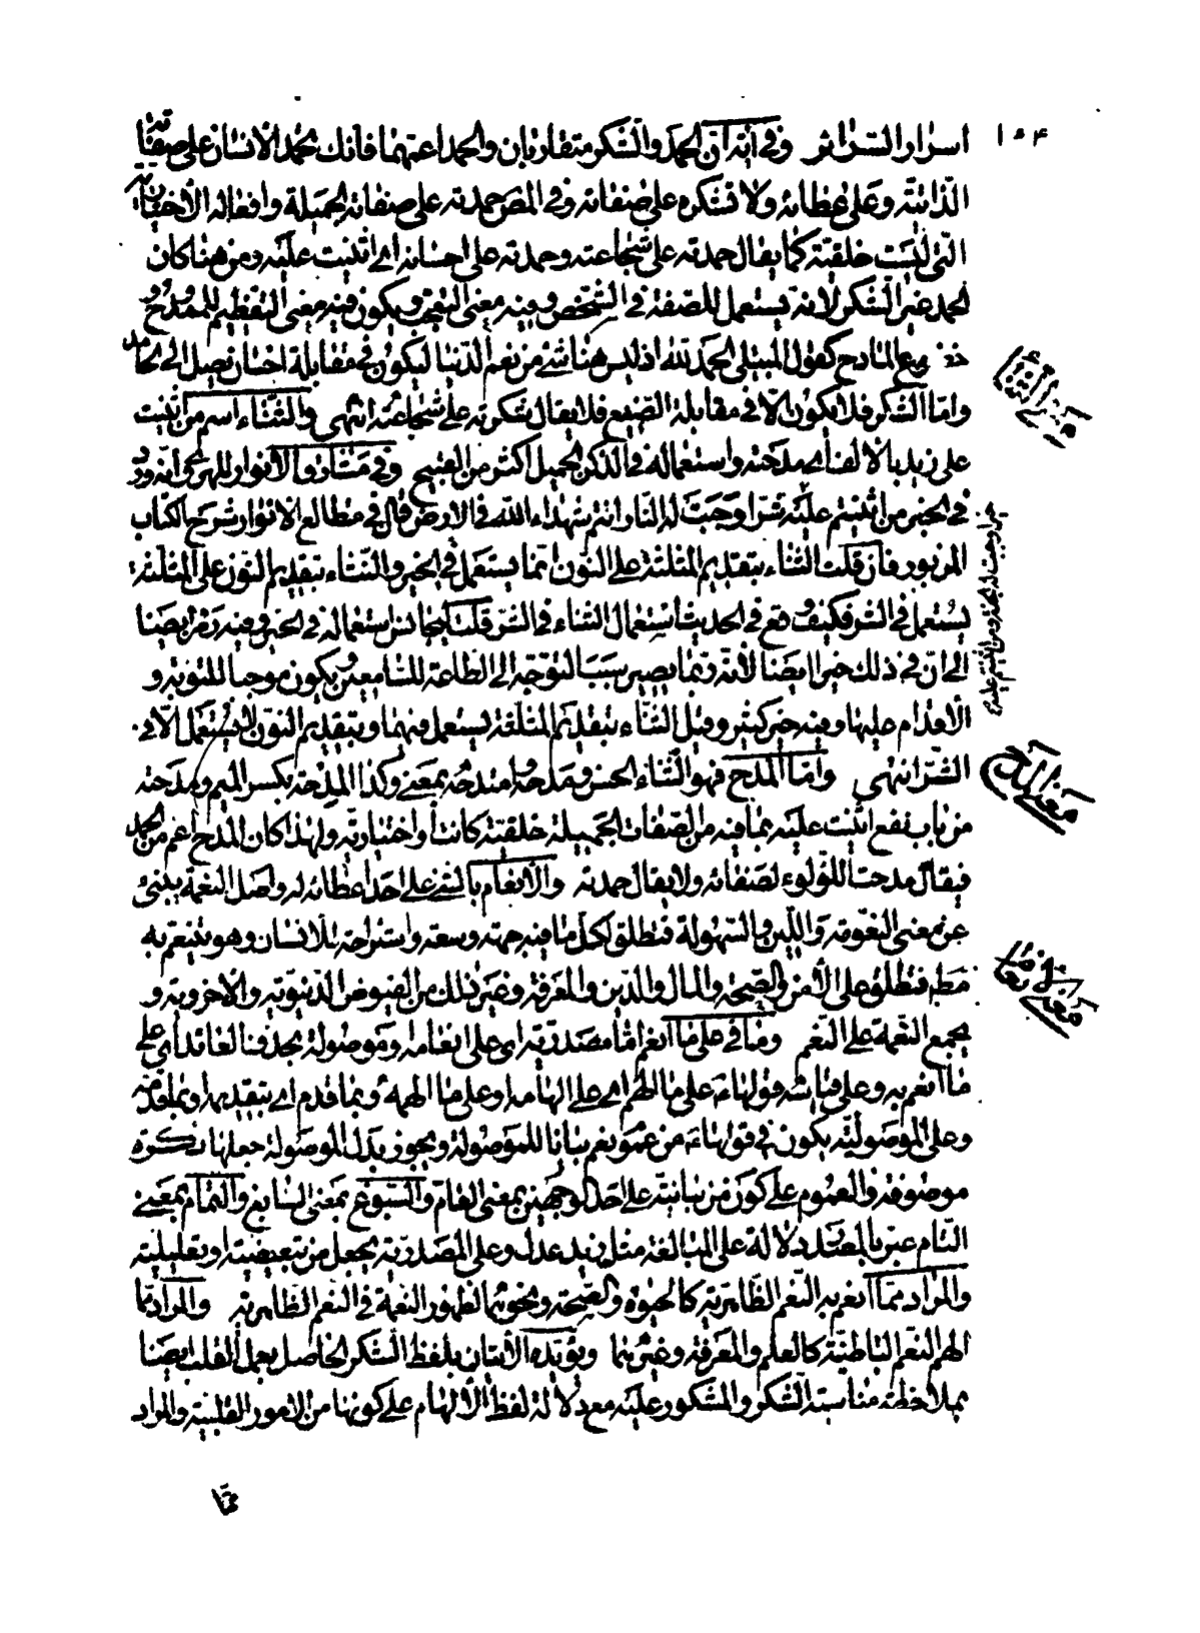 ١٥٤
اسرار السرائر وفى يه ان الحمد والشكر متقاربان والحمد اعمهما فانك تحمد الانسان على صفاته
الذاتية وعلى عطائه ولا تشكره على صفاته وفى المص حمدته على صفاته الجميلة وافعاله الاختيارية
التى ليست خلقية كما يقال حمدته على شجاعته وحمدته على احسانه اى اثنيت عليه ومن هنا كان
الحمد غير الشكر لانه يستعمل للصفة فى الشخص وفيه معنى التعجب ويكون فيه معنى التعظيم للممدوح
وخضوع المادح كقول المبتلى الحمد لله اذ ليس هنا شئ من نعم الدنيا ليكون فى مقابلة احسان يصل الى الحامد
واما الشكر فلا يكون الا فى مقابلة الصنيع فلا يقال شكرته على شجاعته انتهى والثناء اسم من اثنيت
على زيد بالالف اى مدحته واستعماله فى الذكر الجميل اكثر من القبيح وفى مشارق الانوار للهرى انه ورد
فى الخبر من اثنيتم عليه شرا وجبت له النار وانتم شهداء الله فى الارض قال فى مطالع الانوار شرح الكتاب
المزبور فان قلت الثناء بتقديم المثلثة على النون انما يستعمل فى الخير والنثاء بتقديم النون على المثلثة
يستعمل فى الشر فكيف وقع فى الحديث استعمال الثناء فى الشر قلت لتجانس استعماله فى الخير وفيه رمز ايضا
الى ان فى ذلك خيرا ايضا لانه ربما يصير سببا لتوجه الى الطاعة للسامعين ويكون موجبا للتوبة و
الاقدام عليها وفيه خير كثير وقيل الثناء بتقديم المثلثة يستعمل فيهما وبتقديم النون لا يستعمل الا فى
الشر انتهى واما المدح فهو الثناء الحسن ومدحه وامتدحه بمعنى وكذا المدحة بكسر الميم ومدحته
من باب نفع اثنيت عليه بما فيه من الصفات الجميلة خلقية كانت او اختيارية ولهذا كان المدح اعم من الحمد
فيقال مدحت اللؤلؤ لصفائه ولا يقال حمدته والانعام بالشئ على احد اعطائه له واصل النعمة ينبئ
عن معنى النعومة واللين والسهولة فتطلق لكل ما فيه جهة وسعة واستراحة للانسان وهو يتنعم به
مط فتطلق على الامن والصحة والمال والدين والمعرفة وغير ذلك من الفيوض الدنيوية والاخروية و
يجمع النعمة على النعم وما فى على ما انعم اما مصدرية اى على انعامه وموصولة بحذف العائد اى على
ما انعم به وعلى قياسه قولها ع على ما الهم اى على الهامه او على ما الهمه وبما قدم اى بتقديمه او بما قدمه
وعلى الموصولية يكون فى قولها ع من عموم نعم بيانا للموصولة ويجوز بدل الموصولة جعلها نكرة
موصوفة والعموم على كون من بيانية على احد الوجهين بمعنى العام والسبوغ بمعنى السابغ والتمام بمعنى
التام عبر بالمصدر دلالة على المبالغة مثل زيد عدل وعلى المصدرية يجعل من تبعيضية او تعليلية
والمراد مما انعم به النعم الظاهرية كالحيوة والصحة ونحوهما لظهور النعمة فى النعم الظاهرية والمراد بما
الهم النعم الباطنية كالعلم والمعرفة وغيرهما ويؤيده الاتيان بلفظ الشكر الحاصل بعمل القلب ايضا
بملاحظة مناسبة الشكر والمشكور عليه مع دلالة لفظ الالهام على كونها من الامور القلبية والمراد
مما
معنى الثناء
خيرا وجبت له الجنة ومن اثنيتم عليه
معنى المدح
معنى نعما